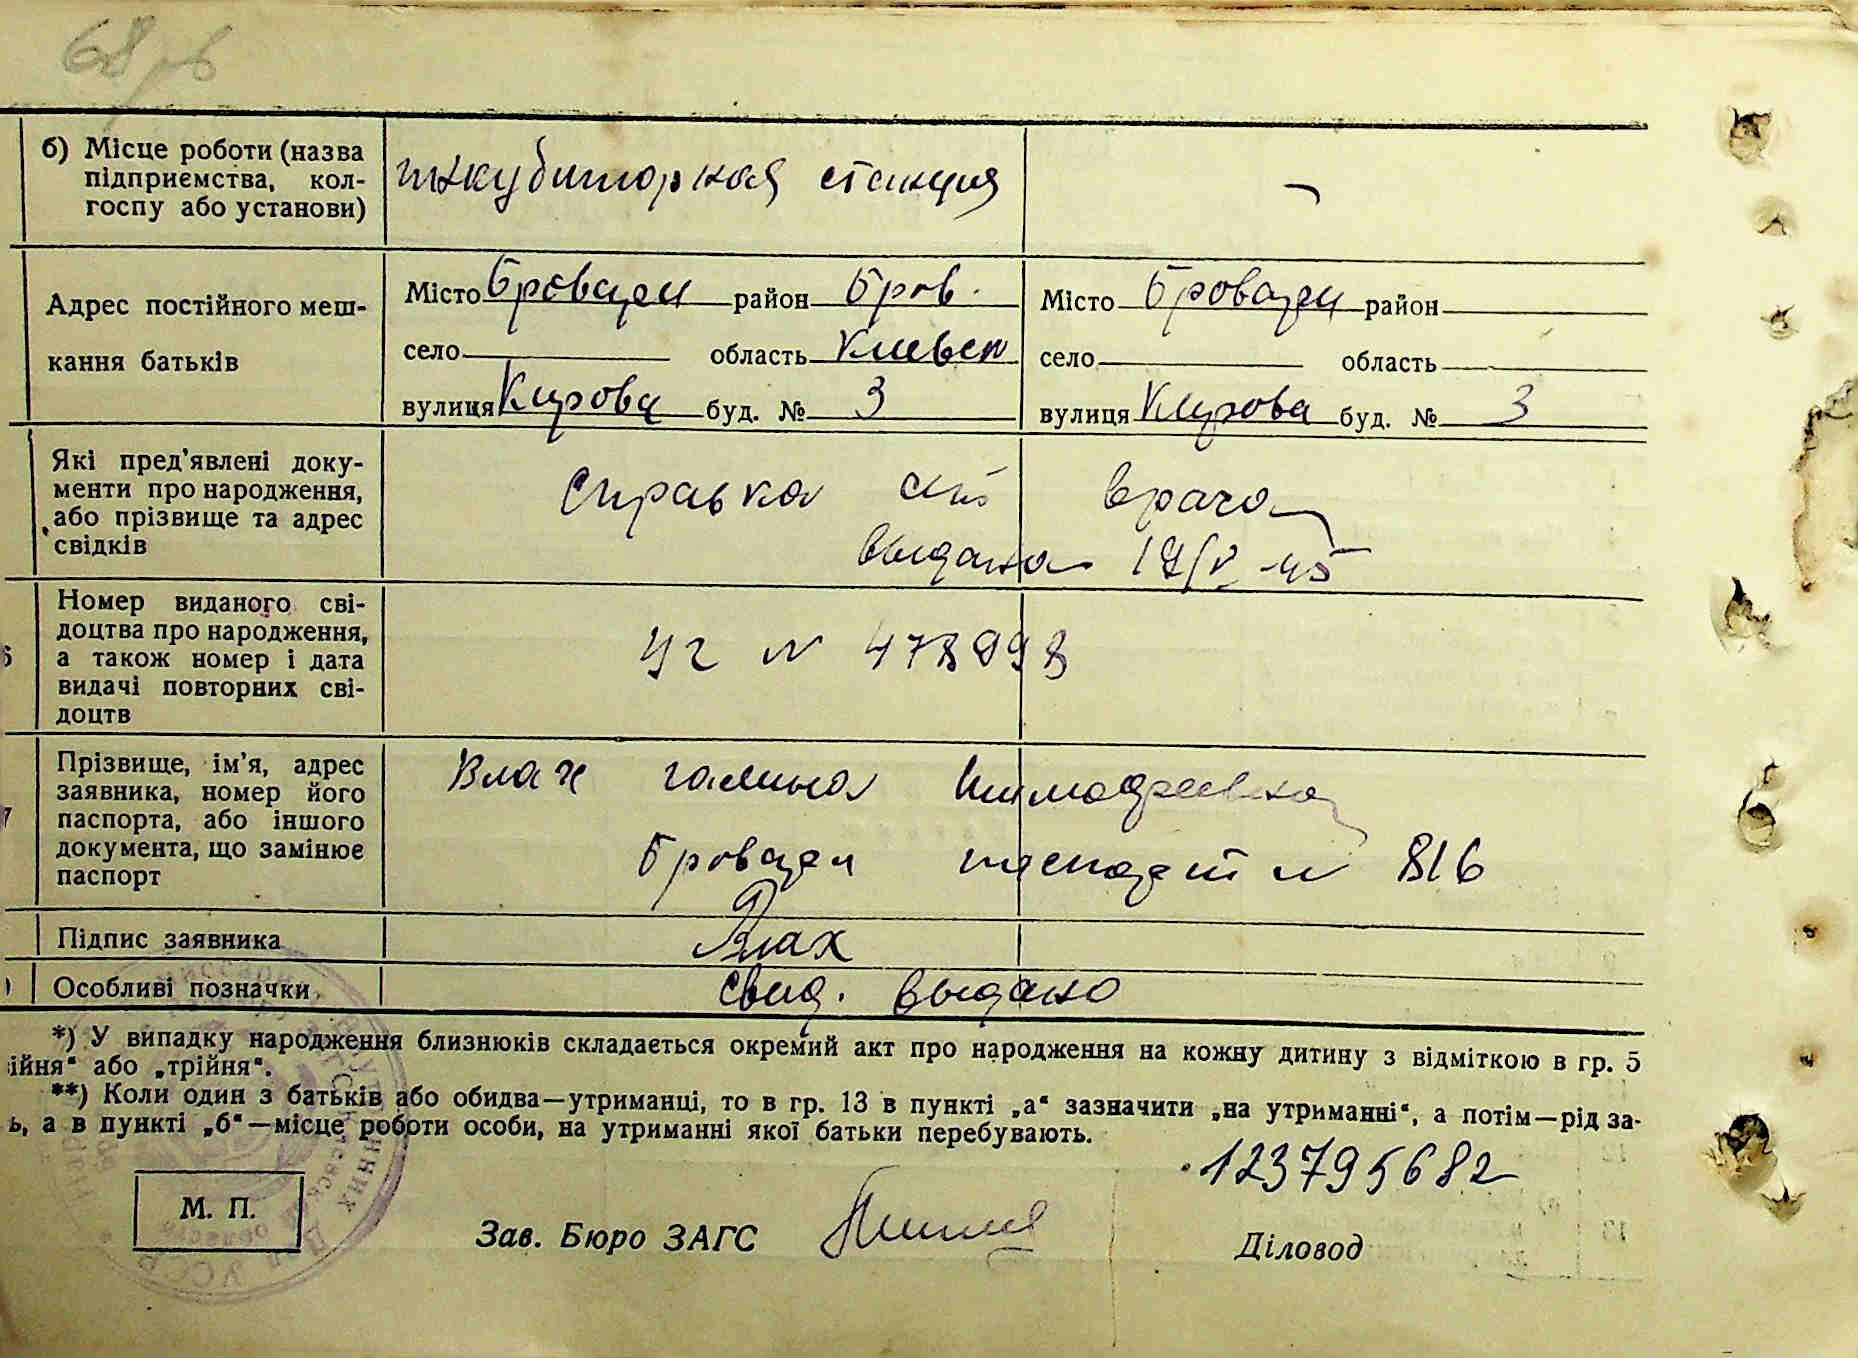 68 рб
б) Місце роботи (назва
підприємства, кол-
госпу або установи)
инкубаторная станция
—
Адрес постійного меш-
кання батьків
Місто Бровари район Бров.
село область Киевск
вулиця Кирова буд. № 3
Місто Бровари район
село область
вулиця Кирова буд. № 3
Які пред'явлені доку-
менти про народження,
або прізвище та адрес
свідків
Справка от врача
выдана 17/V-45
Номер виданого сві-
доцтва про народження,
а також номер і дата
видачі повторних сві-
доцтв
УГ N 478998
Прізвище, ім'я, адрес
заявника, номер його
паспорта, або іншого
документа, що замінює
паспорт
Влах Галина Тимофеевна
Бровари паспорт N 816
Підпис заявника
Влах
Особливі позначки
свид. выдано
*) У випадку народження близнюків складається окремий акт про народження на кожну дитину з відміткою в гр. 5
ійня" або „трійня".
**) Коли один з батьків або обидва—утриманці, то в гр. 13 в пункті „а" зазначити „на утриманні", а потім—рід за-
ь, а в пункті „б"—місце роботи особи, на утриманні якої батьки перебувають.
123795682
М. П.
Зав. Бюро ЗАГС
Діловод